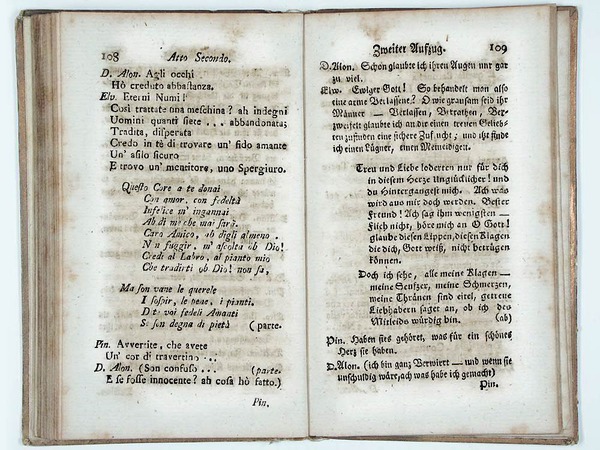 108 Atto Secondo.
D. Alon. Agli occhi
Hò creduto abbastanza.
Elv. Eterni Numi!
Così trattate una meschina? ah indegni
Uomini quanti siete ... abbandonata;
Tradita, disperata
Credo in tè di trovare un' fido amante
Un' asilo sicuro
E trovo un' mentitore, uno Spergiuro.
Questo Core a te donai
Con amor, con fedeltà
Infelice m' ingannai
Ah di me che mai sarà.
Caro Amico, ah digli almeno.
Non fuggir, m' ascolta oh Dio!
Credi al Labro, al pianto mio
Che tradirti oh Dio! non sà,
Ma son vane le querele
I sospir, le pene, i pianti.
Di voi fedeli Amanti
Se son degna di pietà (parte.
Pin. Avvertite, che avete
Un' cor di travertino ...
D. Alon. (Son confuso ... (parte.
E se fosse innocente? ah cosa hò fatto.)
Pin.
Zweiter Aufzug. 109
D. Alon. Schon glaubte ich ihren Augen nur gar
zu viel.
Elw. Ewiger Gott! So behandelt man also
eine arme Verlassene? O wie grausam seid ihr
Männer — Verlassen, Betrothen, Ver-
zweifelt glaubte ich an dir einen treuen Gelieb-
ten zufinden eine sichere Zuflucht; und itzt finde
ich einen Lügner, einen Meineidigen.
Treu und Liebe loderten nur für dich
in diesem Herze Unglücklicher! und
du Hintergangest mich. Ach was
wird aus mir doch werden. Bester
Freund! Ach sag ihm wenigsten —
Flieh nicht, höre mich an O Gott!
glaube diesen Lippen, diesen Klagen
die dich, Gott weiß, nicht betrügen
können.
Doch ich sehe, alle meine Klagen —
meine Seufzer, meine Schmerzen,
meine Thränen sind eitel, getreue
Liebhabern saget an, ob ich des
Mitleids würdig bin. (ab)
Pin. Haben sies gehöret, was für ein schönes
Herz sie haben.
D. Alon. (ich bin ganz Verwirrt — und wenn sie
unschuldig wäre, ach was habe ich gemacht)
Pin.